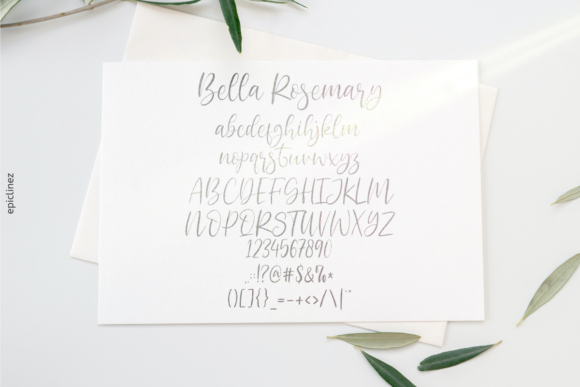 Bella Rosemary
abcdefghihjklm
nopqrstuvwxyz
ABCDEFGHIJKLM
NOPQRSTUVWXYZ
1234567890
.,:;!?@#$&%*
()[]{}_=-+<>/\|¨"
epiclinez